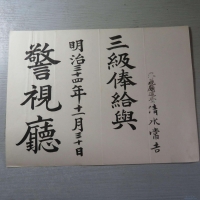 清水常吉
三級俸給與
明治三十四年十二月三十日
警視廳